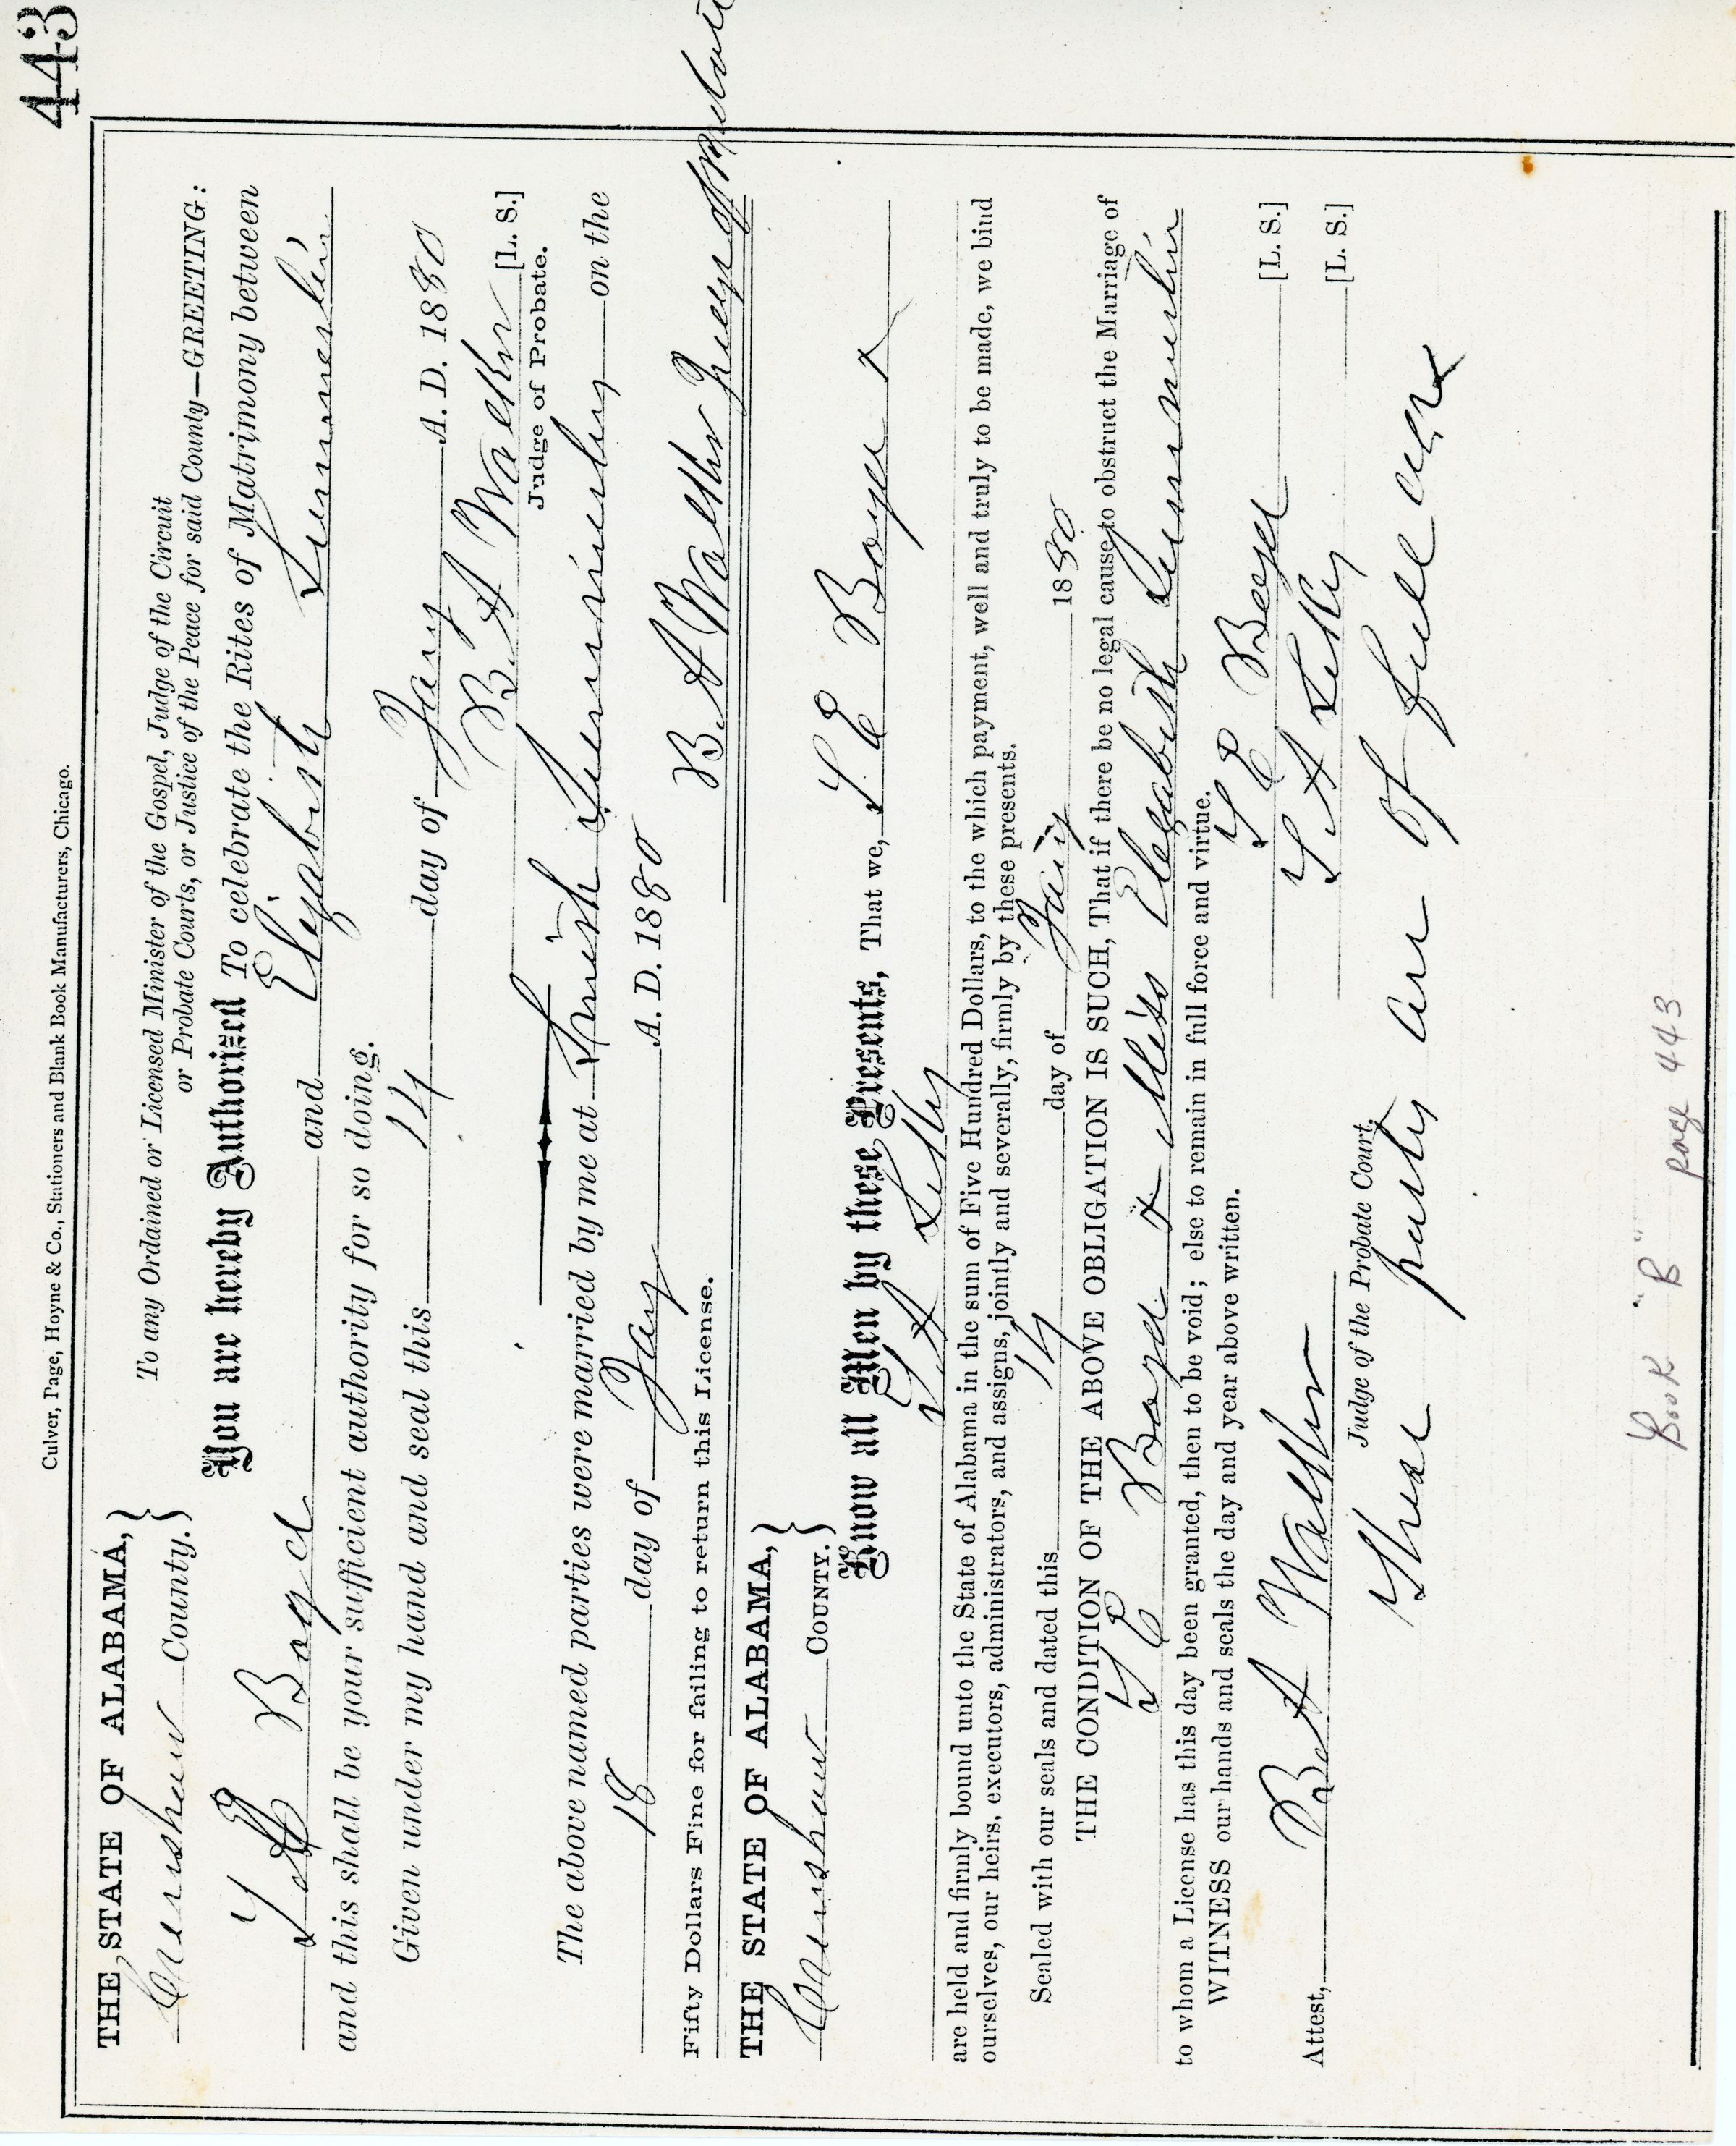 443
Culver, Page, Hoyne & Co., Stationers and Blank Book Manufacturers, Chicago.
THE STATE OF ALABAMA,
Crenshaw County.
To any Ordained or Licensed Minister of the Gospel, Judge of the Circuit
or Probate Courts, or Justice of the Peace for said County—GREETING:
You are hereby Authorized To celebrate the Rites of Matrimony between
Boyd and Elizabeth
and this shall be your sufficient authority for so doing.
Given under my hand and seal this 14 day of Jany A. D. 1880
B. A Walker [L. S.]
Judge of Probate.
The above named parties were married by me at on the
18 day of Jany A. D. 1880
B. A Walker
Fifty Dollars Fine for failing to return this License.
THE STATE OF ALABAMA,
Crenshaw COUNTY.
Know all Men by these Presents, That we, Boyd
are held and firmly bound unto the State of Alabama in the sum of Five Hundred Dollars, to the which payment, well and truly to be made, we bind
ourselves, our heirs, executors, administrators, and assigns, jointly and severally, firmly by these presents.
Sealed with our seals and dated this 14 day of Jany 1880
THE CONDITION OF THE ABOVE OBLIGATION IS SUCH, That if there be no legal cause to obstruct the Marriage of
Boyd & Miss Elizabeth
to whom a License has this day been granted, then to be void; else to remain in full force and virtue.
WITNESS our hands and seals the day and year above written.
Boyd [L. S.]
[L. S.]
Attest, B. A Walker
Judge of the Probate Court,
These parties are of full age
Book "B" page 443